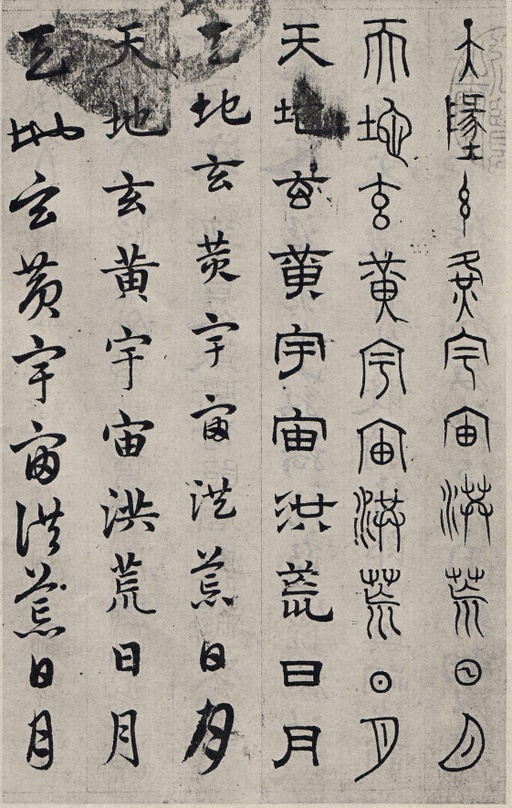 天墬玄黃宇宙洪荒日月
天地玄黃宇宙洪荒日月
天地玄黃宇宙洪荒日月
天地玄黄宇宙洪荒日月
天地玄黄宇宙洪荒日月
天地玄黄宇宙洪荒日月